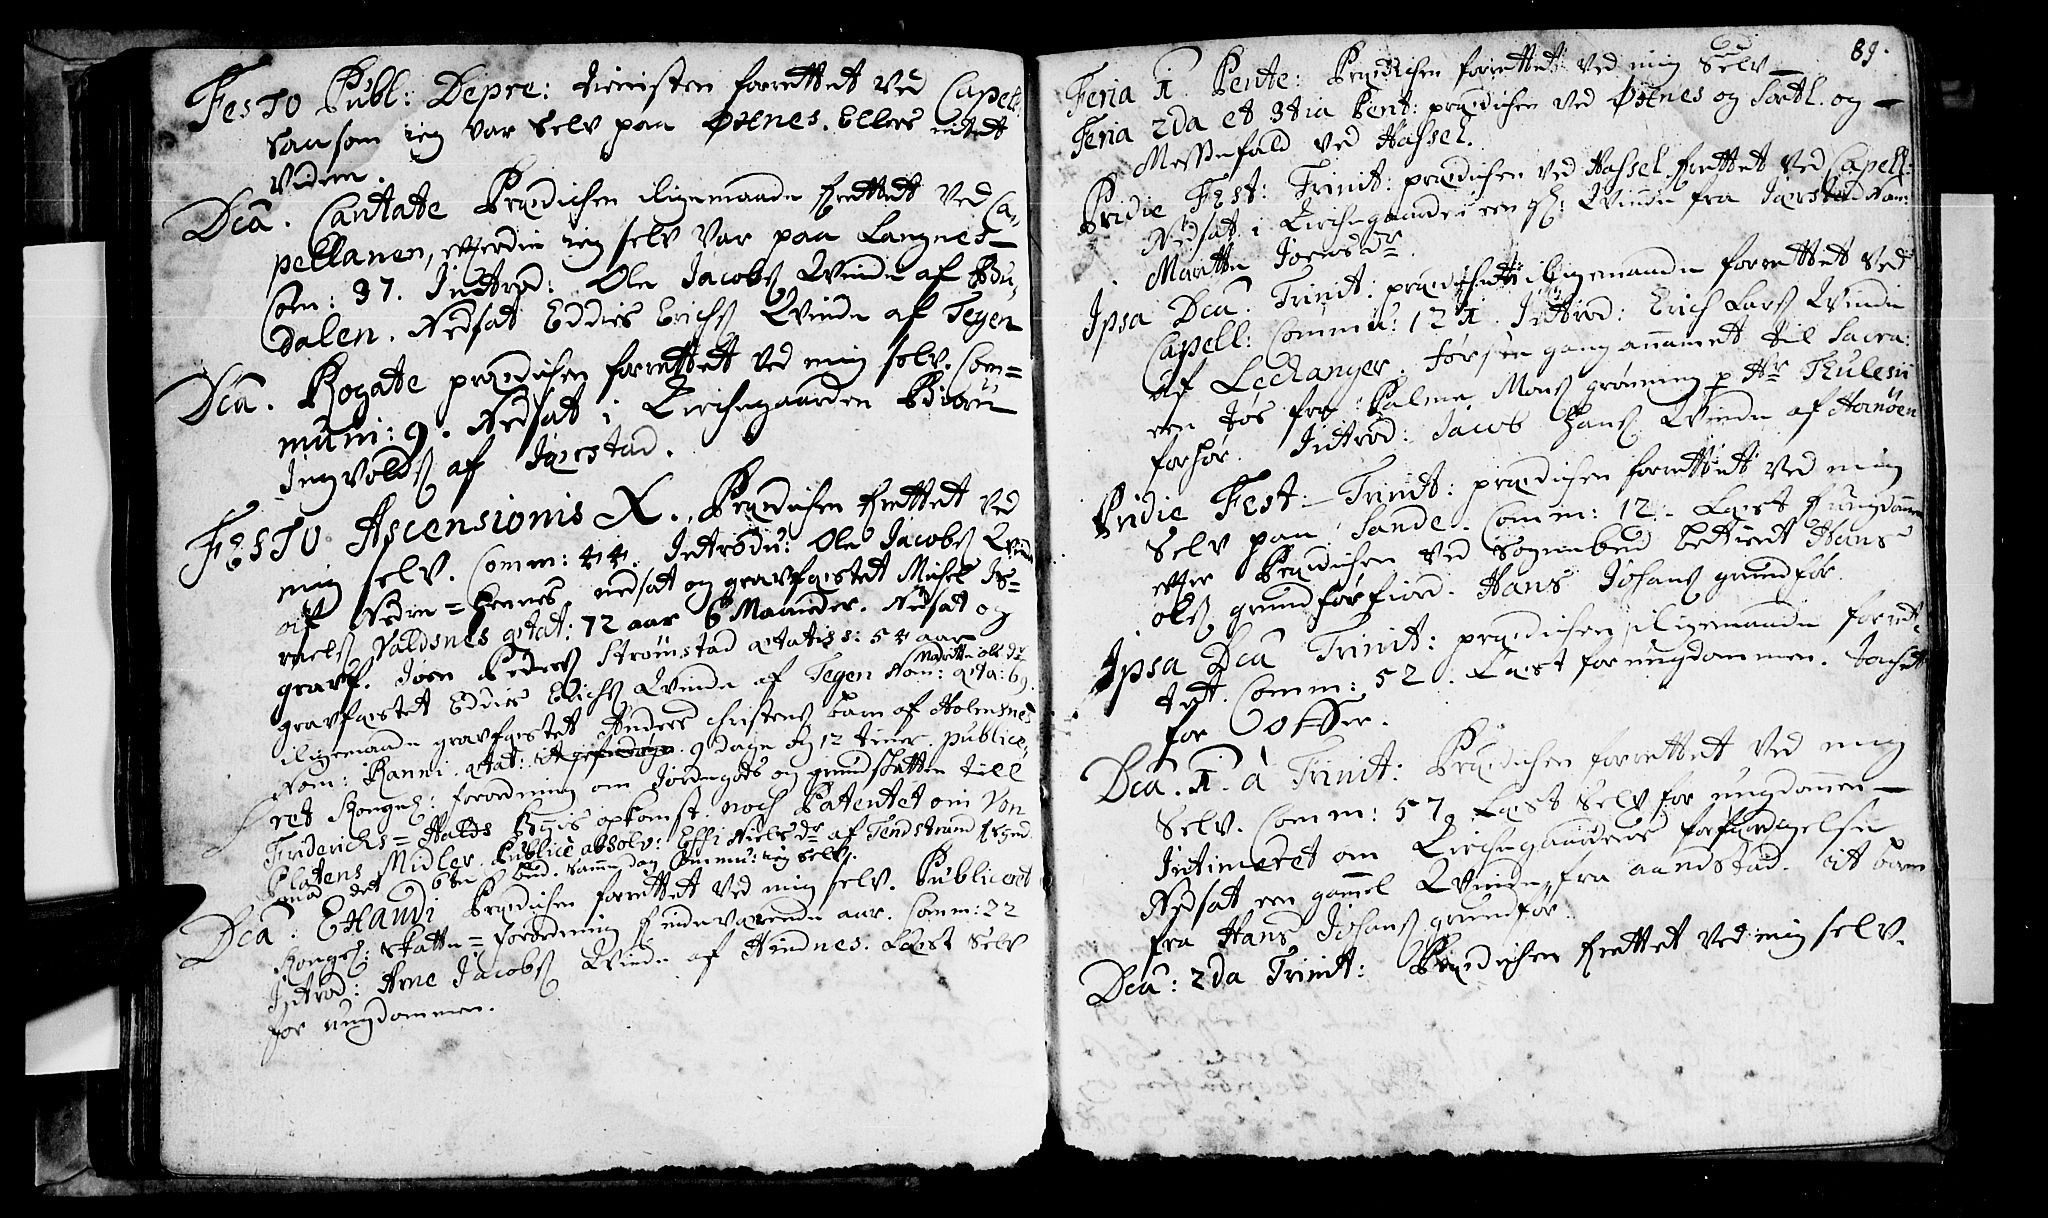 Festo Publ: Depre: tienisten forrettet ved Capell:
saasom ieg var selv paa Øxnes. Ellers intet
videre.
Dca. Cantate Prædichen iligemaade forrettet ved Ca-
pellanen, efterdi ieg selv var paa Langnes
Com: 37. Introd: Ole Jacobs Qvinde af Bu-
dalen. Nedsat Eddies Erichs Qvinde af Tegen
Dca. Rogate prædichen forrettet ved mig selv. Com=
muni: 9. Nedsat i Kirchegaarden Biørn
Ingvolds af Jørstad.
Festo Ascensionis X. Prædichen forrettet ved
mig selv. Comm: 44. Introdu: Ole Jacobs Qvinde
af Nedre= nedsat og gravfæstet Michel Is=
raels Valdsnes ætat: 72 aar 6 Maaneder. Nedsat og
gravf. Joen Peders Strømstad ætatis: 54 aar
Maritte ols dr
gravfæstet Eddies Erichs Qvinde af Tegen Nom: æta: 69.
iligemaade gravfæstet Anders Christens barn af Holmsnes
Nom: Ranni. ætat: 9 dage og 12 timer. publice-
ret Kongel: forordning om Jordegots og grundskatten till
Friderichs=Halds Byis opkomst. noch Patentet om Von
Platens Midler. Publicè absolv: Effi Niels dr af Tendstrand
6te bud. samme dag Commu: ieg selv.
Dca. Exaudi Prædichen forrettet ved mig selv. Publiceret
Kongel: Skatte=forordning indeværende aar. Comm: 22
Introd: Arne Jacobs Qvinde af Hindnes. Læst selv
for ungdommen.
89.
Feria 1. Pente: Prædichen forrettet ved mig selv
Feria 2da et 3tia Pent: prædichen ved Øxnes og Sortl. og
Messefald ved Hassel.
Pridie Fest: Trinit: prædichen ved Hassel forrettet ved Capell:
Nedsat i Kirchegaarden een gl: Qvinde fra Jørstad Nom:
Maritte Joensdr.
Ipsa Dca Trinit: prædichen iligemaade forrettet ved
Capell: Commu: 121. Introd: Erich Lars Qvinde
af Leckanger. første gang annamet til Sacra:
een tøs fra Palma Mons grønning p Hr Thulesii
forhør. Introd: Jacob Hans Qvinde af Hornøen
Pridie Fest: Trinit: prædichen forrettet ved mig
selv paa Sande. Comm: 12. Læst f ungdom
efter Prædichen ved Sognebud bettient Hans
ols grundførfiord. Hans Johans grundfør.
Ipsa Dca Trinit: prædichen iligemaade forret-
tet. Comm: 52. Læst for ungdommen.
for Offer.
Dca. 1. à Trinit: Prædichen forrettet ved mig
selv. Comm: 57. Læst selv for ungdommen
Intimeret om Kirchegaardens forfærdigelse
Nedsat een gammel Qvinde fra aandstad. it barn
fra Hans Johans grundfør.
Dca: 2da Trinit: Prædichen forrettet ved mig selv.